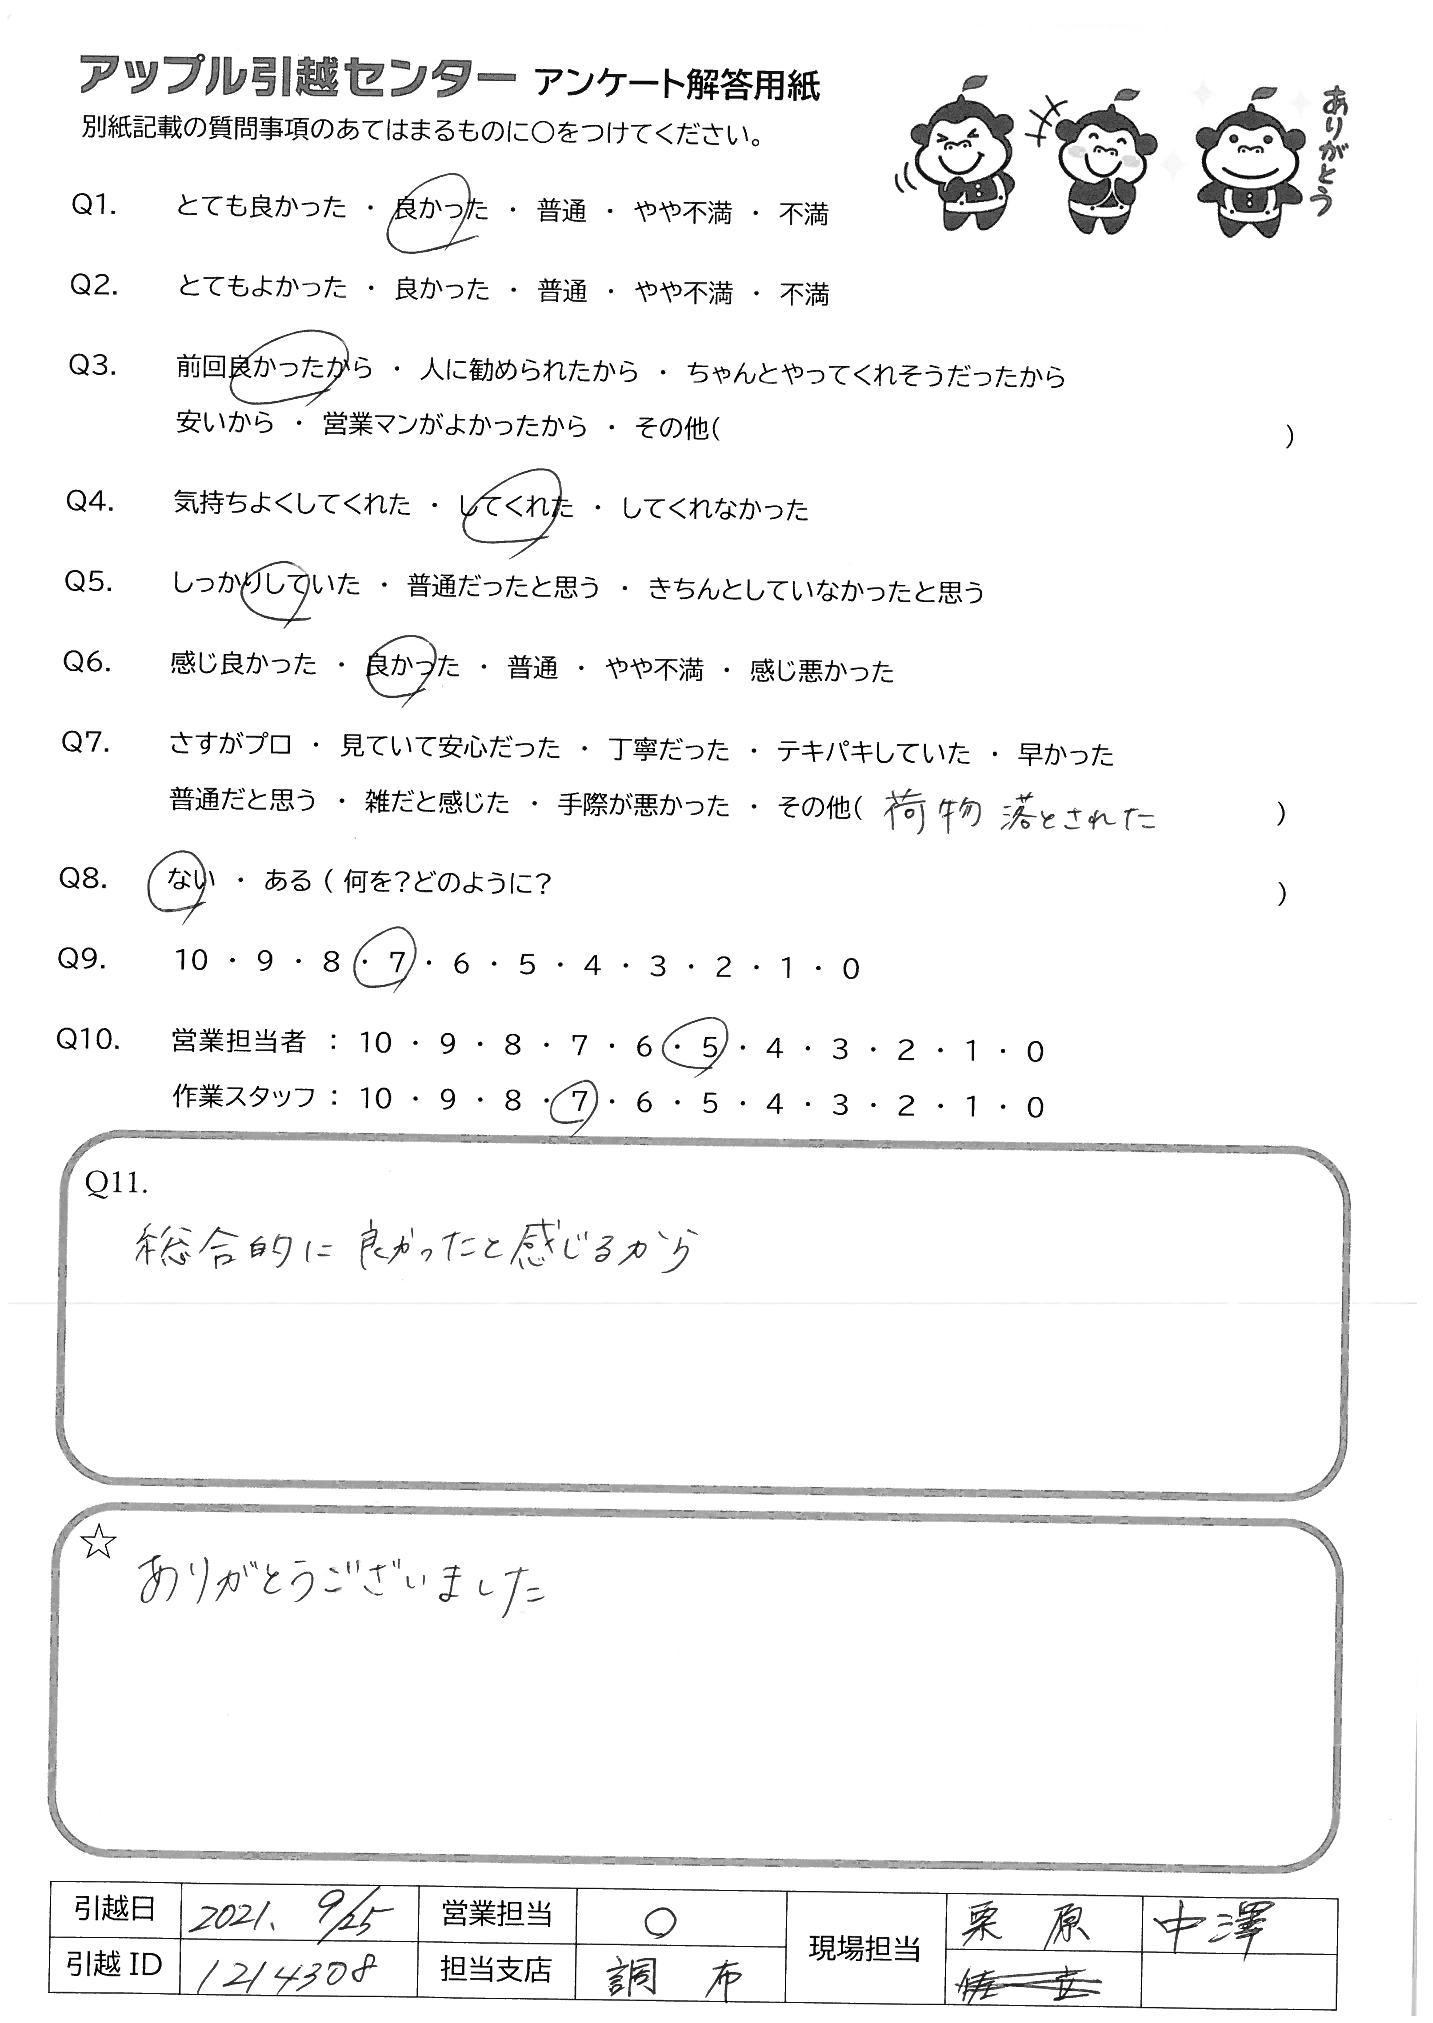 アップル引越センター アンケート解答用紙
別紙記載の質問事項のあてはまるものに○をつけてください。
ありがとう
Q1. とても良かった ・ 良かった ・ 普通 ・ やや不満 ・ 不満
Q2. とてもよかった ・ 良かった ・ 普通 ・ やや不満 ・ 不満
Q3. 前回良かったから ・ 人に勧められたから ・ ちゃんとやってくれそうだったから
安いから ・ 営業マンがよかったから ・ その他( )
Q4. 気持ちよくしてくれた ・ してくれた ・ してくれなかった
Q5. しっかりしていた ・ 普通だったと思う ・ きちんとしていなかったと思う
Q6. 感じ良かった ・ 良かった ・ 普通 ・ やや不満 ・ 感じ悪かった
Q7. さすがプロ ・ 見ていて安心だった ・ 丁寧だった ・ テキパキしていた ・ 早かった
普通だと思う ・ 雑だと感じた ・ 手際が悪かった ・ その他( 荷物 落とされた )
Q8. ない ・ ある ( 何を?どのように? )
Q9. 10 ・ 9 ・ 8 ・ 7 ・ 6 ・ 5 ・ 4 ・ 3 ・ 2 ・ 1 ・ 0
Q10. 営業担当者 : 10 ・ 9 ・ 8 ・ 7 ・ 6 ・ 5 ・ 4 ・ 3 ・ 2 ・ 1 ・ 0
作業スタッフ : 10 ・ 9 ・ 8 ・ 7 ・ 6 ・ 5 ・ 4 ・ 3 ・ 2 ・ 1 ・ 0
Q11.
総合的に良かったと感じるから
☆
ありがとうございました
引越日 2021. 9/25 営業担当 ○ 現場担当 栗原 中澤
引越 ID 1214308 担当支店 調布